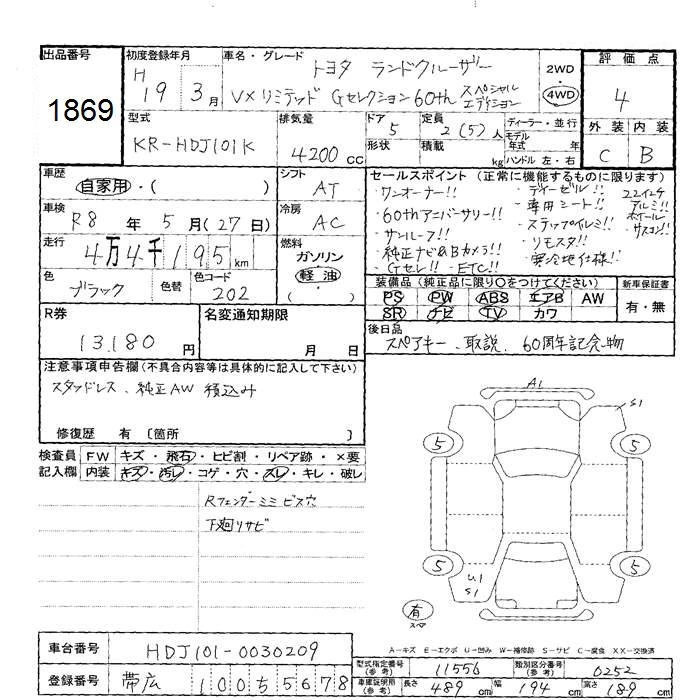 出品番号
1869
初度登録年月
H 19 3 月
車名・グレード
トヨタ ランドクルーザー
VXリミテッド Gセレクション 60th スペシャル エディション
2WD
4WD
評価点
4
外装 内装
C B
型式
KR-HDJ101K
排気量
4200 cc
ドア
5
形状
定員
2 (5) 人
積載
kg
ディーラー・並行
モデル
年式 年
ハンドル 左・右
車歴
自家用・( )
シフト
AT
車検
R8 年 5 月(27 日)
冷房
AC
走行
4万4千195 km
燃料
ガソリン
軽油
( ・ )
色
ブラック
色替
色コード
202
セールスポイント (正常に機能するものに限ります)
・ワンオーナー!!
・60thアニバーサリー!!
・サンルーフ!!
・純正ナビ&Bカメラ!!
・Gセレ!! ・ETC!!
・ディーゼル!!
・専用シート!!
・ステップイルミ!!
・リモスタ!!
・寒冷地仕様!!
22インチ
アルミ!!
ホイール
装備品(純正品に限り○をつけてください)
PS PW ABS エアB AW
SR ナビ TV カワ
新車保証書
有・無
R券
13,180 円
名変通知期限
月 日
後日品
スペアキー、取説、60周年記念物
注意事項申告欄(不具合内容等は具体的に記入して下さい)
スタッドレス、純正AW 積込み
修復歴 有 〔箇所 〕
検査員 FW キズ・飛石・ヒビ割・リペア跡・×要
記入欄 内装 キズ・汚レ・コゲ・穴・スレ・キレ・破レ
Rフェンダーミミ ビス穴
下廻リサビ
A1
S1
5
5
5
5
U1
S1
有
スペア
A-キズ E-エクボ U-凹み W-補修跡 S-サビ C-腐食 XX-交換済
車台番号
HDJ101-0030209
登録番号
帯広 100 5 5678
型式指定番号
(参考)
11556
類別区分番号
(参考)
0252
車庫証明用
(参考)
長さ
489 cm
幅
194 cm
高さ
189 cm